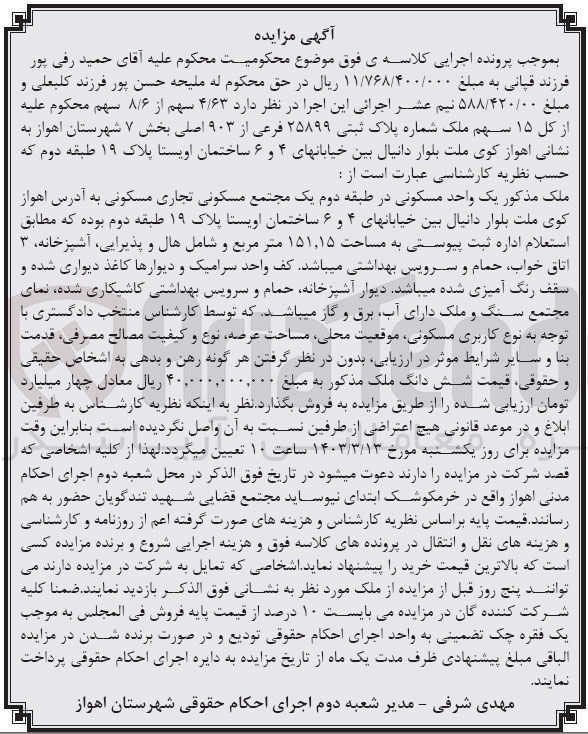 آگهی مزایده
بموجب پرونده اجرایی کلاسه ی فوق موضوع محکومیت محکوم علیه آقای حمید رفی پور
فرزند قپانی به مبلغ ۱۱/۷۶۸/۴۰۰/۰۰۰ ریال در حق محکوم له ملیحه حسن پور فرزند کلبعلی و
مبلغ ۵۸۸/۴۲۰/۰۰ نیم عشر اجرائی این اجرا در نظر دارد ۴/۶۳ سهم از ۸/۶ سهم محکوم علیه
از کل ۱۵ سهم ملک شماره پلاک ثبتی ۲۵۸۹۹ فرعی از ۹۰۳ اصلی بخش ۷ شهرستان اهواز به
نشانی اهواز کوی ملت بلوار دانیال بین خیابانهای ۴ و ۶ ساختمان اویستا پلاک ۱۹ طبقه دوم که
حسب نظریه کارشناسی عبارت است از :
ملک مذکور یک واحد مسکونی در طبقه دوم یک مجتمع مسکونی تجاری مسکونی به آدرس اهواز
کوی ملت بلوار دانیال بین خیابانهای ۴ و ۶ ساختمان اویستا پلاک ۱۹ طبقه دوم بوده که مطابق
استعلام اداره ثبت پیوستی به مساحت ۱۵۱,۱۵ متر مربع و شامل هال و پذیرایی، آشپزخانه، ۳
اتاق خواب، حمام و سرویس بهداشتی میباشد. کف واحد سرامیک و دیوارها کاغذ دیواری شده و
سقف رنگ آمیزی شده میباشد. دیوار آشپزخانه، حمام و سرویس بهداشتی کاشیکاری شده، نمای
مجتمع سنگ و ملک دارای آب، برق و گاز میباشد. که توسط کارشناس منتخب دادگستری با
توجه به نوع کاربری مسکونی، موقعیت محلی، مساحت عرصه، نوع و کیفیت مصالح مصرفی، قدمت
بنا و سایر شرایط موثر در ارزیابی، بدون در نظر گرفتن هر گونه رهن و بدهی به اشخاص حقیقی
و حقوقی، قیمت شش دانگ ملک مذکور به مبلغ ۴۰,۰۰۰,۰۰۰,۰۰۰ ریال معادل چهار میلیارد
تومان ارزیابی شده را از طریق مزایده به فروش بگذارد.نظر به اینکه نظریه کارشناس به طرفین
ابلاغ و در موعد قانونی هیچ اعتراضی از طرفین نسبت به آن واصل نگردیده است بنابراین وقت
مزایده برای روز یکشنبه مورخ ۱۴۰۳/۳/۱۳ ساعت ۱۰ تعیین میگردد.لهذا از کلیه اشخاصی که
قصد شرکت در مزایده را دارند دعوت میشود در تاریخ فوق الذکر در محل شعبه دوم اجرای احکام
مدنی اهواز واقع در خرمکوشک ابتدای نیوساید مجتمع قضایی شهید تندگویان حضور به هم
رسانند.قیمت پایه براساس نظریه کارشناس و هزینه های صورت گرفته اعم از روزنامه و کارشناسی
و هزینه های نقل و انتقال در پرونده های کلاسه فوق و هزینه اجرایی شروع و برنده مزایده کسی
است که بالاترین قیمت خرید را پیشنهاد نماید.اشخاصی که تمایل به شرکت در مزایده دارند می
توانند پنج روز قبل از مزایده از ملک مورد نظر به نشانی فوق الذکر بازدید نمایند.ضمنا کلیه
شرکت کننده گان در مزایده می بایست ۱۰ درصد از قیمت پایه فروش فی المجلس به موجب
یک فقره چک تضمینی به واحد اجرای احکام حقوقی تودیع و در صورت برنده شدن در مزایده
الباقی مبلغ پیشنهادی ظرف مدت یک ماه از تاریخ مزایده به دایره اجرای احکام حقوقی پرداخت
نمایند.
مهدی شرفی - مدیر شعبه دوم اجرای احکام حقوقی شهرستان اهواز